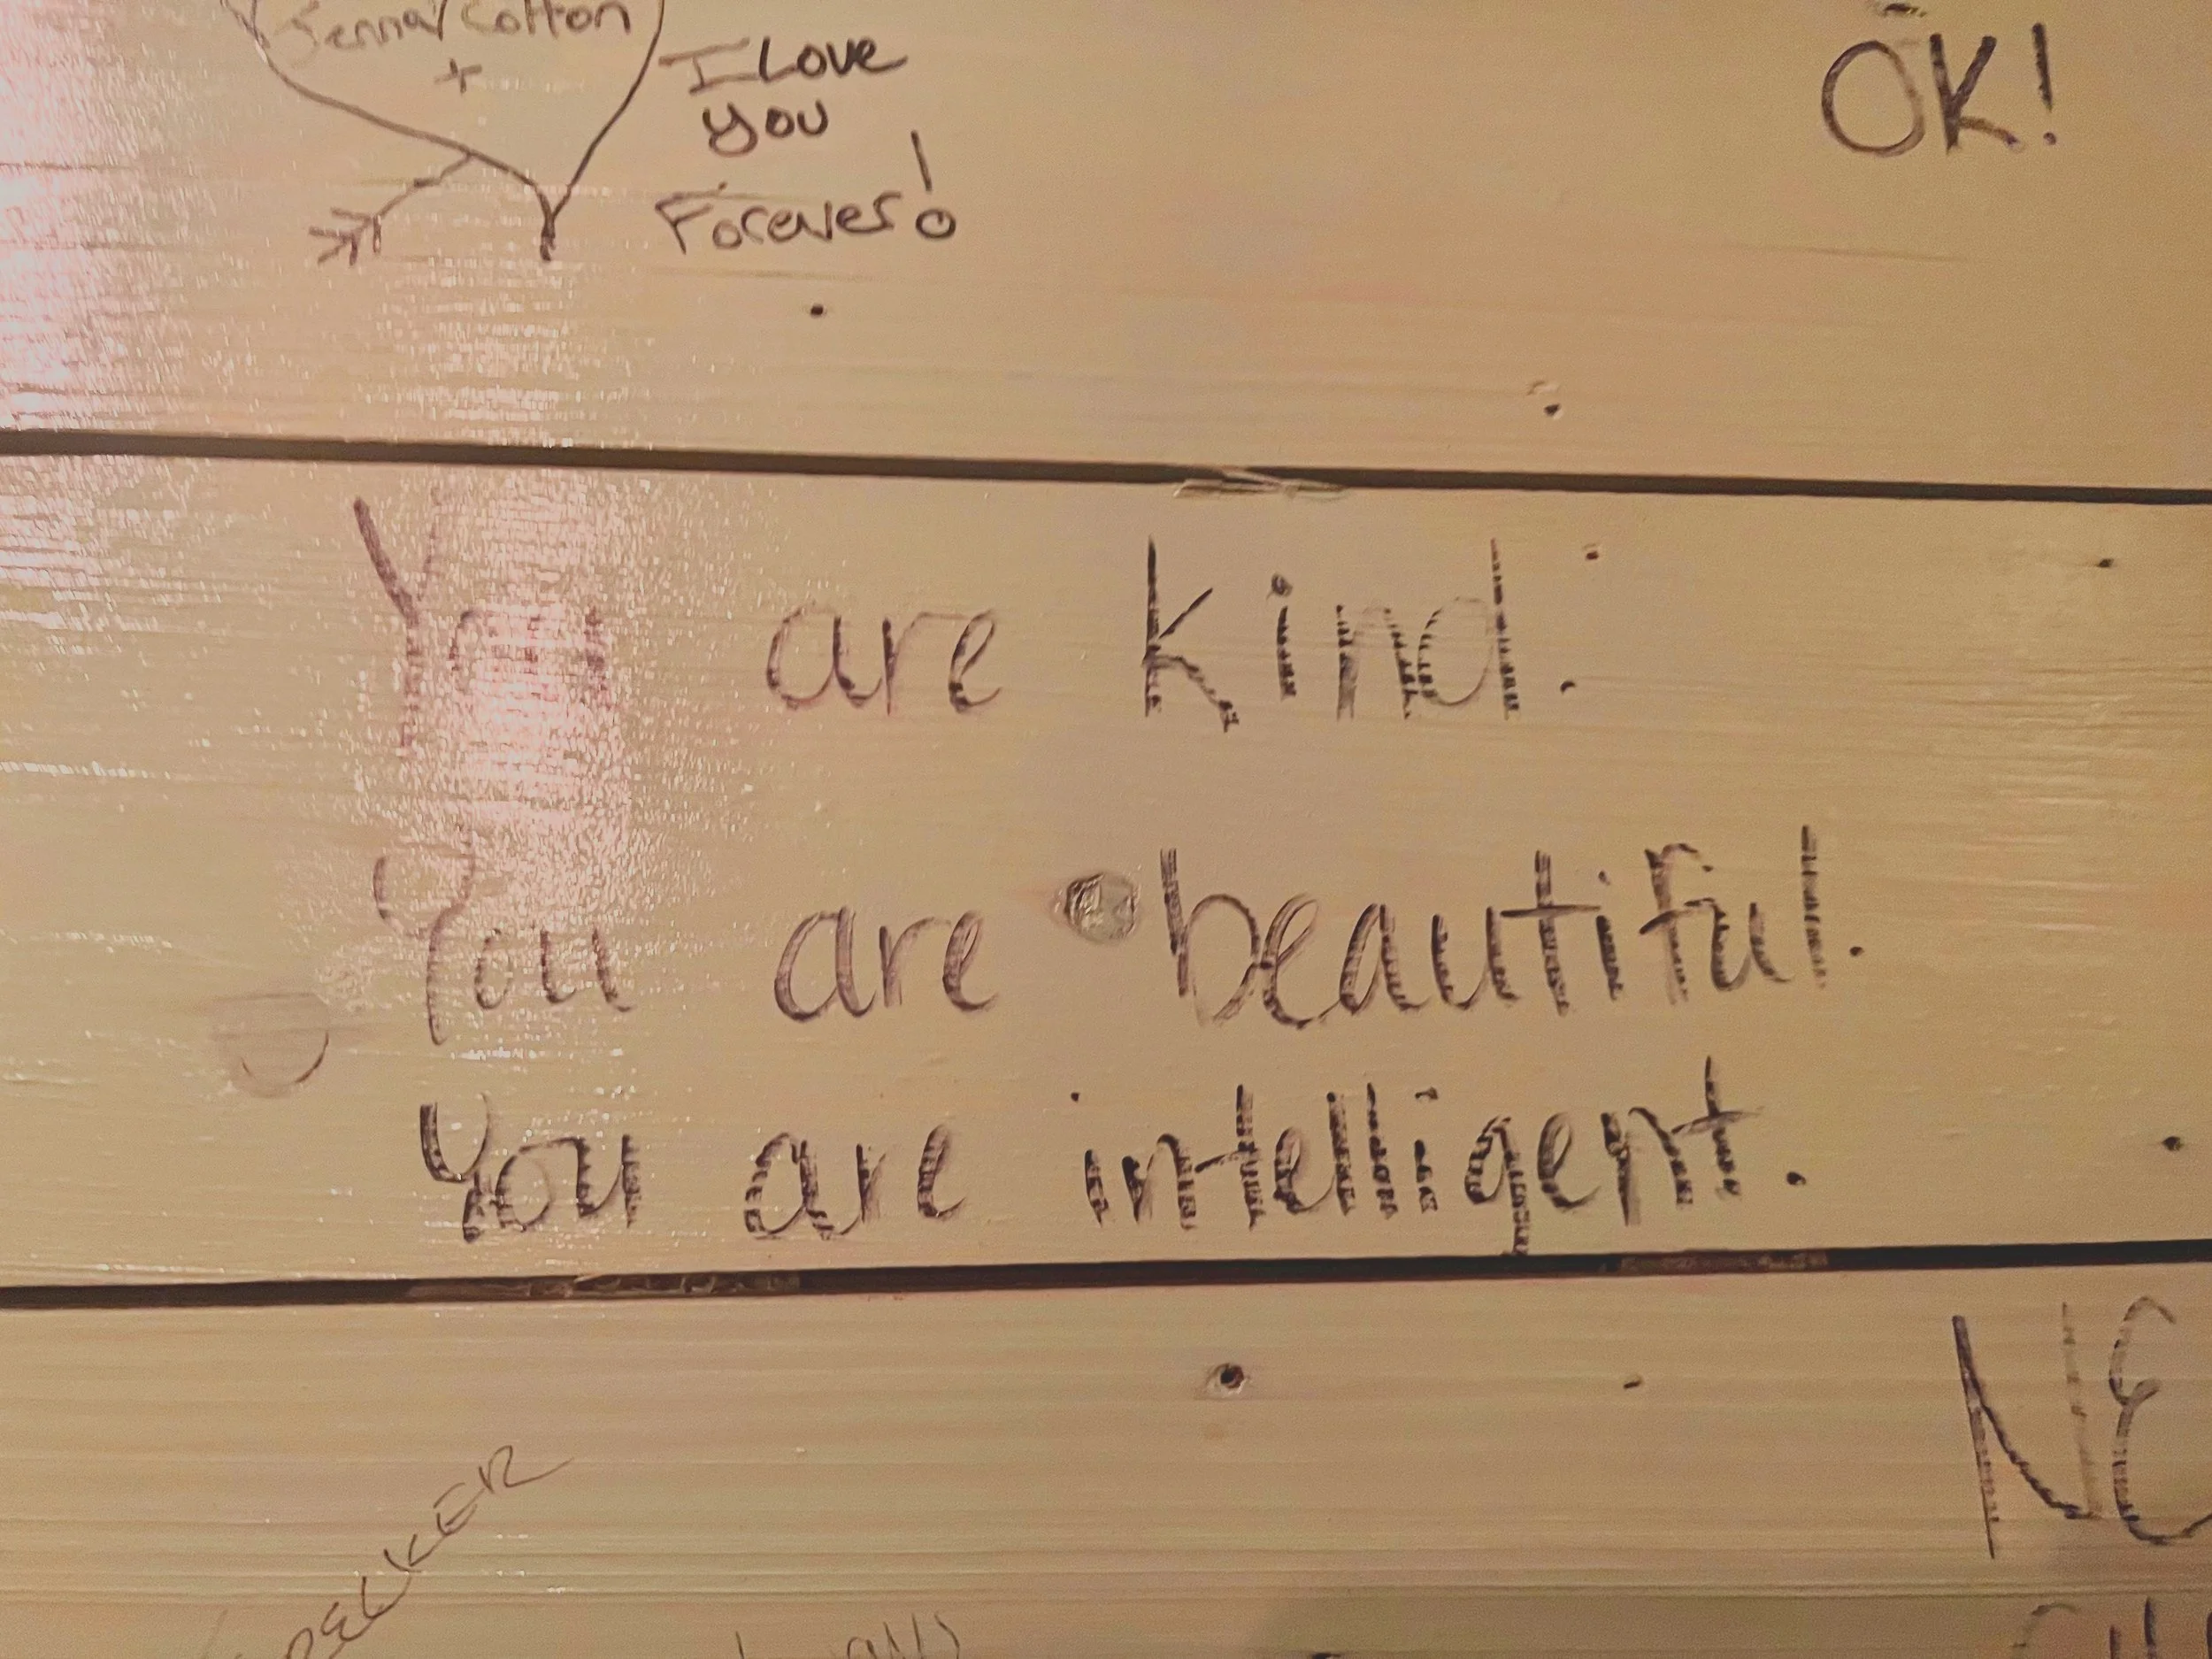 Jenna Cotton
+
I Love
you
Forever!
OK!
You are kind.
You are beautiful.
You are intelligent.
NE